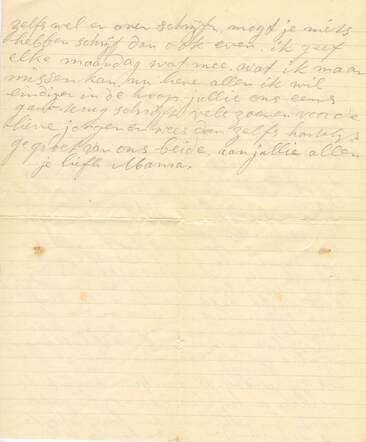 zelfs wel er over schrijfn, mogt je niets
hebben schrijf dan ook even. ik geef
elke maandag wat mee. wat ik maar
missen kan nu lieve allen ik wil
eindigen in de hoop jullie ons eens
gauw terug schrijft vele zoenen voor de
lieve jongen en wees dan zelfs hartelijk
gegroet van ons beide, aan jullie allen
je liefh Mama.